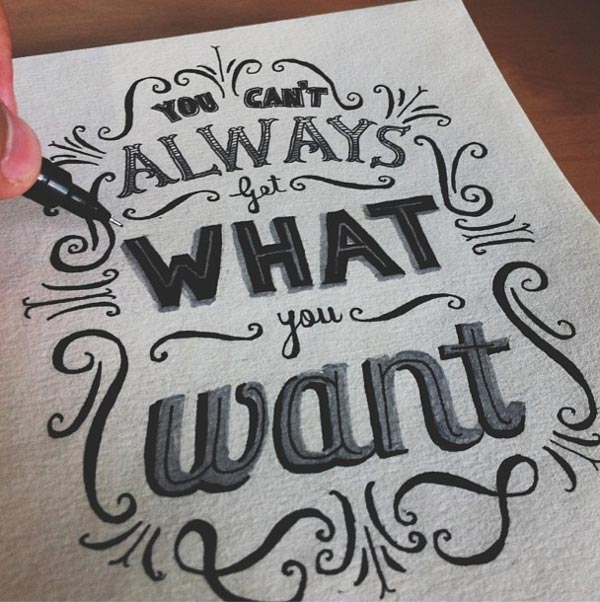 YOU CAN'T
ALWAYS
get
WHAT
you
want